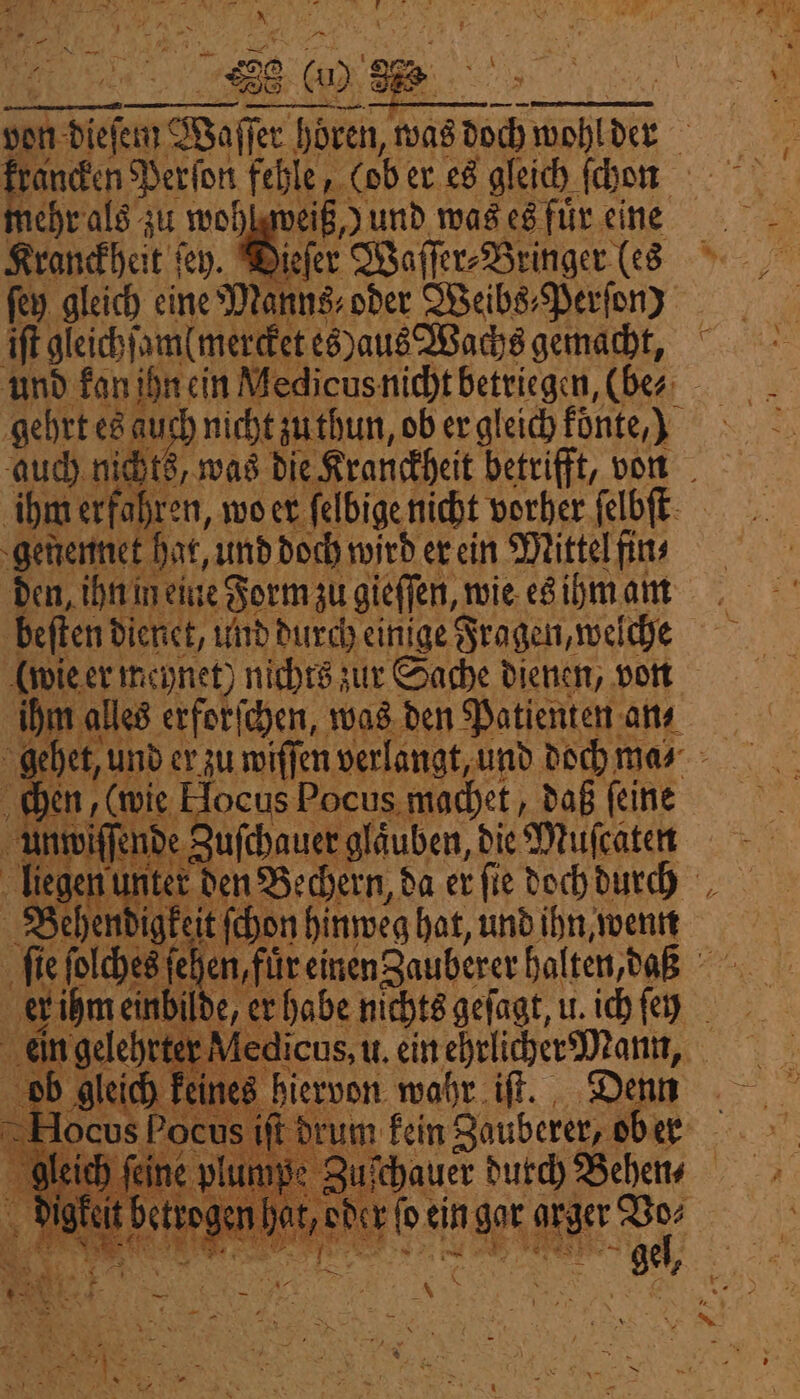 (11)
von dieſem Waſſer hören, was doch wohl der
krancken Perſon fehle, (ob er es gleich ſchon
mehr als zu wohl weiß,) und was es für eine
Kranckheit ſey. Dieſer Waſſer⸗Bringer (es
ſey gleich eine Manns⸗ oder Weibs⸗Perſon)
iſt gleichſam (mercket es) aus Wachs gemacht,
und kan ihn ein Medicus nicht betriegen, (be⸗
gehrt es auch nicht zu thun, ob er gleich könte,)
auch nichts, was die Kranckheit betrifft, von
ihm erfahren, wo er ſelbige nicht vorher ſelbſt
genennet hat, und doch wird er ein Mittel fin⸗
den, ihn in eine Form zu gieſſen, wie es ihm am
beſten dienet, und durch einige Fragen, welche
(wie er meynet) nichts zur Sache dienen, von
ihm alles erforſchen, was den Patienten an⸗
gehet, und er zu wiſſen verlangt, und doch ma⸗
chen, (wie Hocus Pocus machet, daß ſeine
unwiſſende Zuſchauer gläuben, die Muſcaten
liegen unter den Bechern, da er ſie doch durch
Behendigkeit ſchon hinweg hat, und ihn, wenn
ſie ſolches ſehen, für einen Zauberer halten, daß
er ihm einbilde, er habe nichts geſagt, u. ich ſey
ein gelehrter Medicus, u. ein ehrlicher Mann,
ob gleich keines hiervon wahr iſt. Denn
Hocus Pocus iſt drum kein Zauberer, ob er
gleich ſeine plumpe Zuſchauer durch Behen⸗
digkeit betrogen hat, oder ſo ein gar arger Vo⸗
gel,